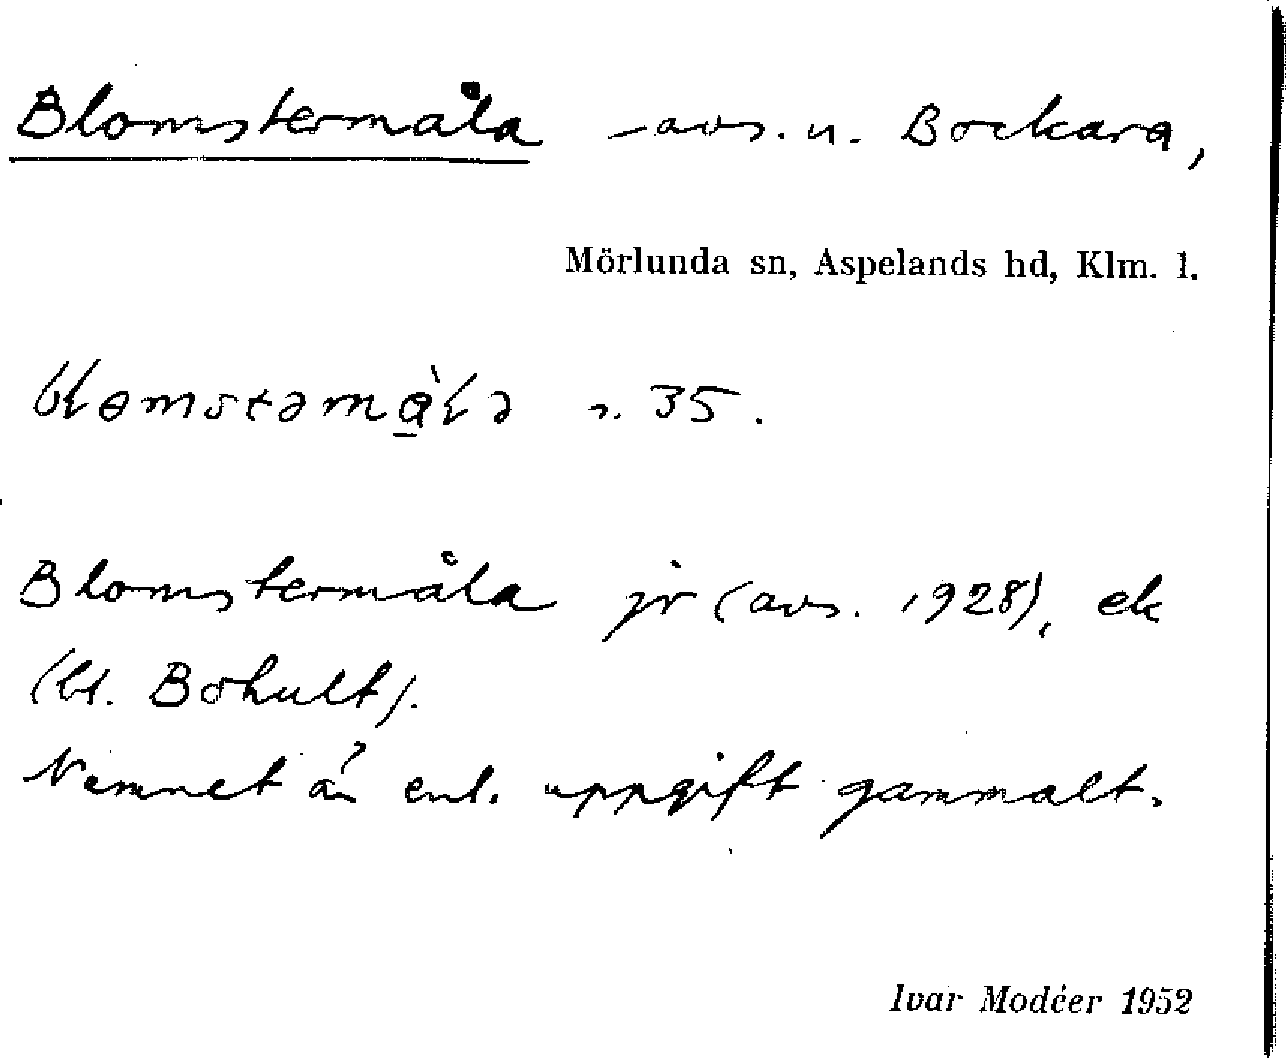 Blomstermåla – avs. u. Bockara,
Mörlunda sn, Aspelands hd, Klm. l.
35.
Blomstermåla jr (avs. 1928), ek
(bl. Bohult).
Namnet är enl. uppgift gammalt.
Ivar Modéer 1952